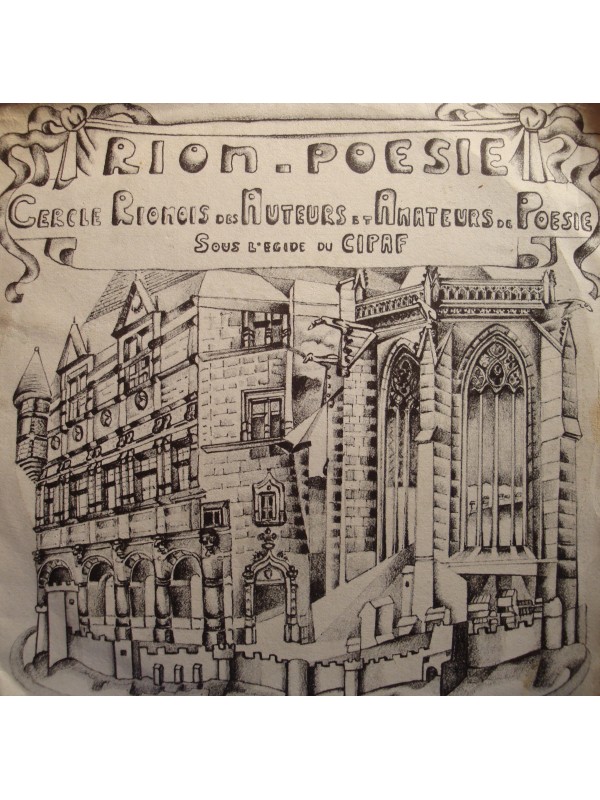 RIOM - POESIE
CERCLE RIOMOIS DES AUTEURS ET AMATEURS DE POESIE
SOUS L'EGIDE DU CIPAF